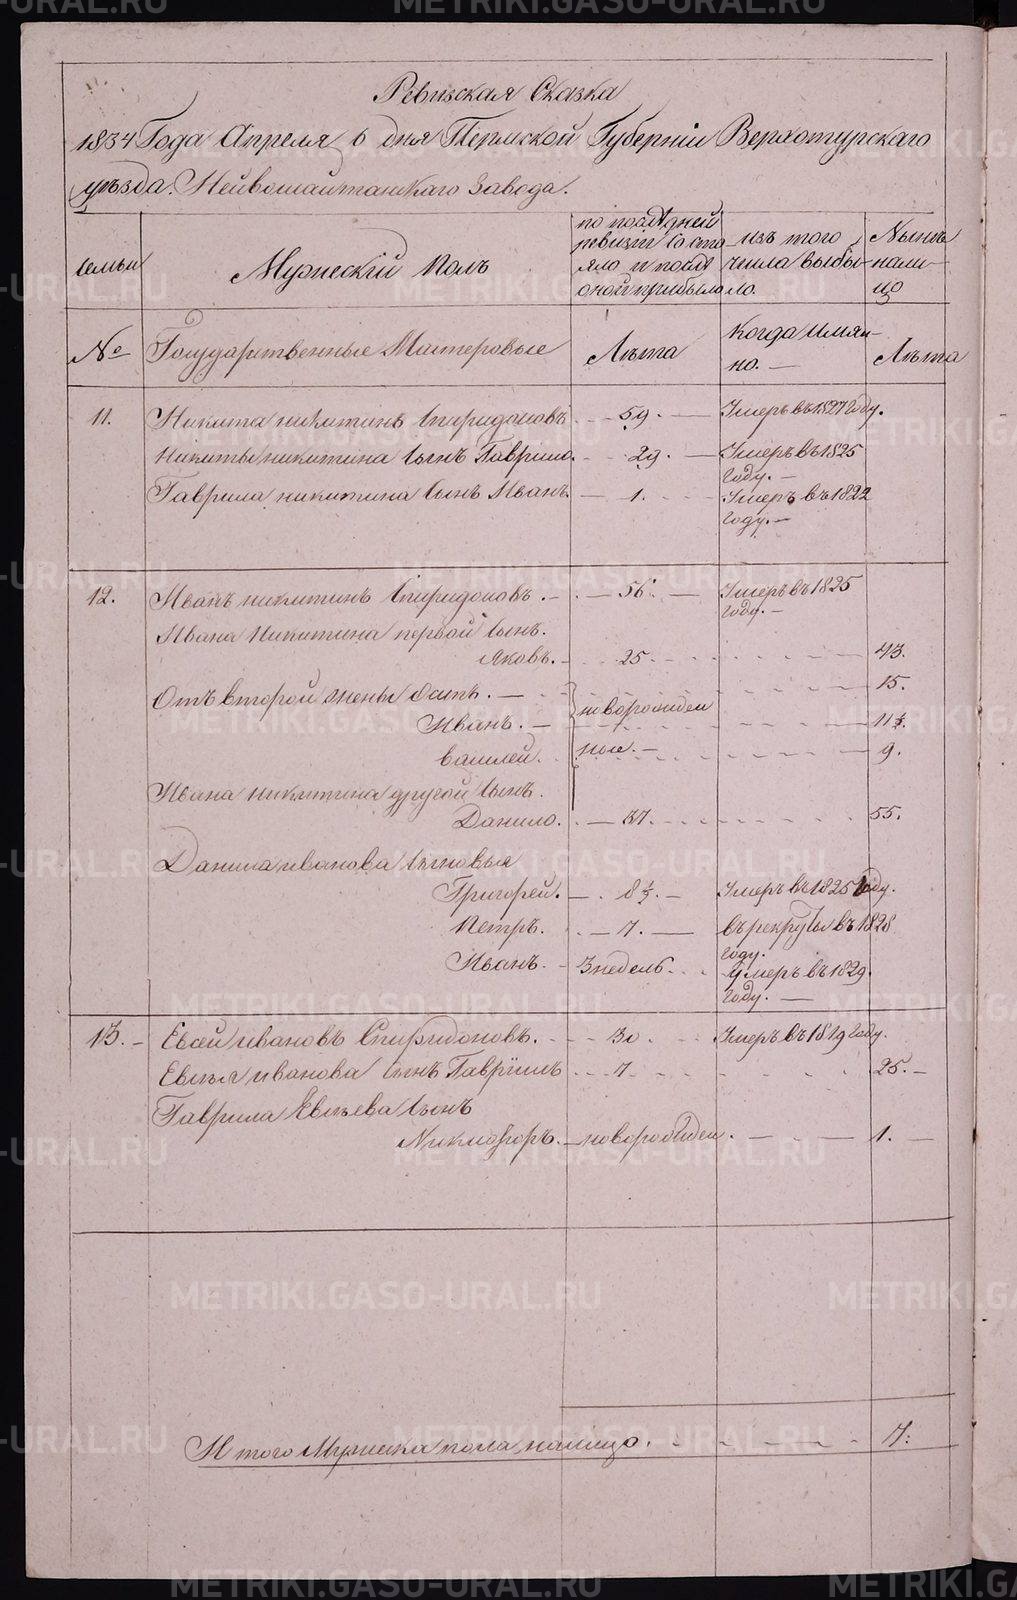 METRIKI.GASO-URAL.RU
Ревизская Сказка
1834 Года Апреля 6 дня Пермской Губерніи Верхотурскаго
уѣзда. Нейвошайтанскаго Завода.
Семьи
Мужескій Полъ
по последней ревизіи состояло и после оной прибыло
изъ того числа выбыло.
Нынѣ налицо
№
Государственные Мастеровые
Лѣта
Когда имянно. —
Лѣта
11. Никита никитинъ Спиридоновъ — 59. — Умеръ въ 1827 году.
Никиты никитина сынъ Гаврило. 29. — Умеръ въ 1825
году. —
Гаврила никитина сынъ Иванъ. — 1. Умеръ въ 1822
году. —
12. Иванъ никитинъ Спиридоновъ. — 56. — Умеръ въ 1825
году. —
Ивана Никитина первой сынъ.
Яковъ. — 25. 43.
Отъ второй жены Осипъ. — 15.
Иванъ. — новорожден 11½.
василей. ные. — 9.
Ивана никитина другой сынъ.
Данило. — 37. 55.
Данила иванова сыновья
Григорей. — 8½. — Умеръ въ 1825 году.
Петръ. — 7. — въ рекруты въ 1828
году.
Иванъ. — 3 недель. умеръ въ 1829.
году. —
13. — Евсей ивановъ Спиридоновъ. 30. Умеръ въ 1819 году.
Евсѣя иванова сынъ Гавріилъ 7. 25. —
Гаврила Евсѣева сынъ
Никифоръ. — новорожден. — 1. —
Итого Мужеска пола налицо. 7.